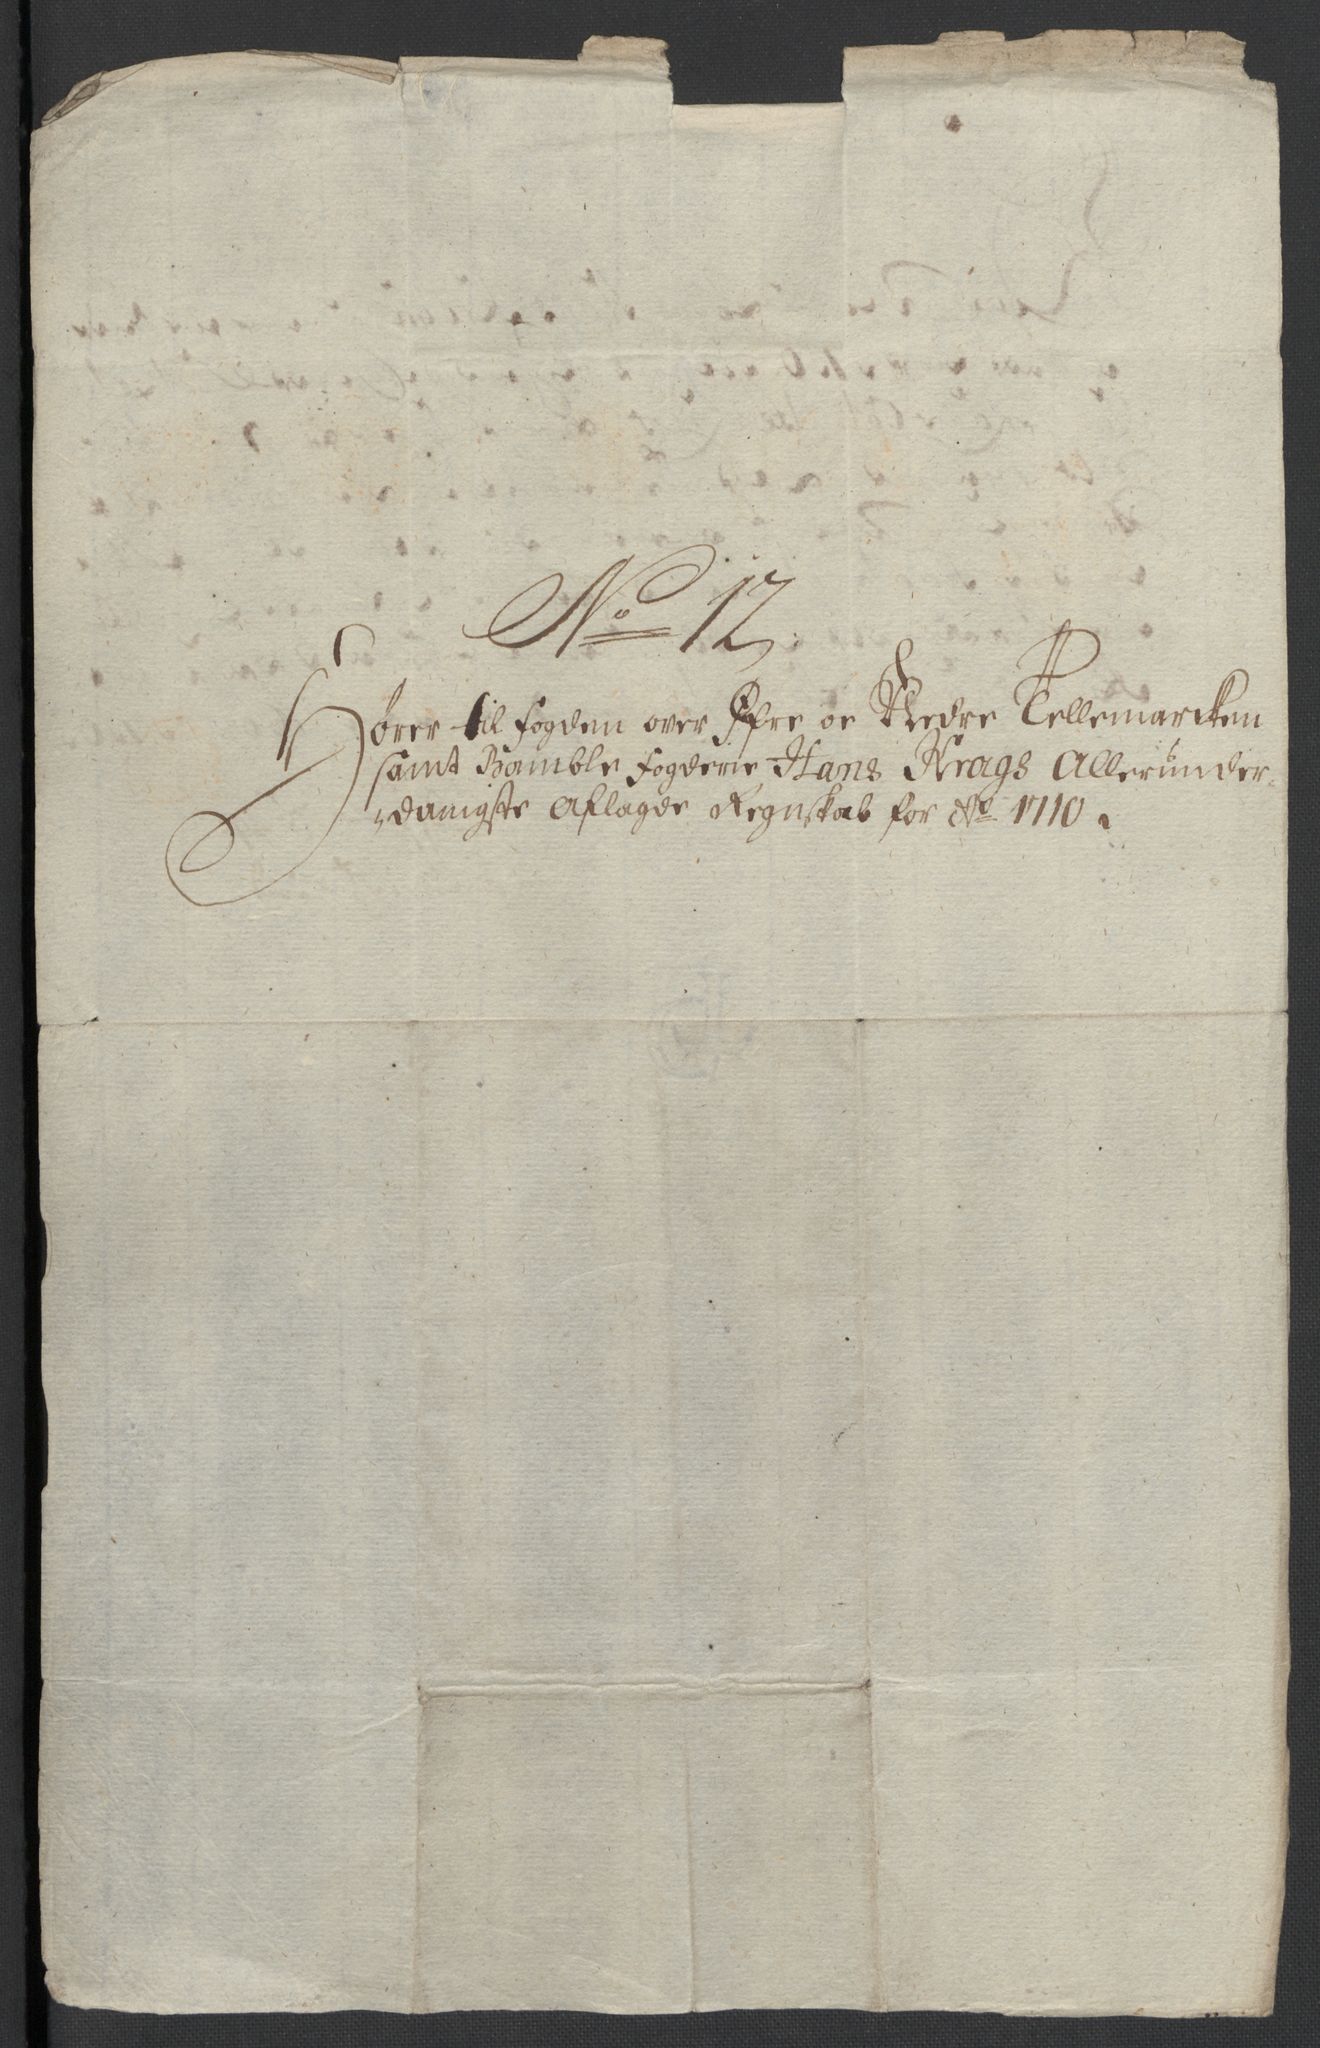 No 12.
Hører til fogden over Øfre oc Nedre Tellemarcken
samt Bamble Fogderie Hans Krags Allerunder-
danigste Aflagde Regnskab for Ao 1710.